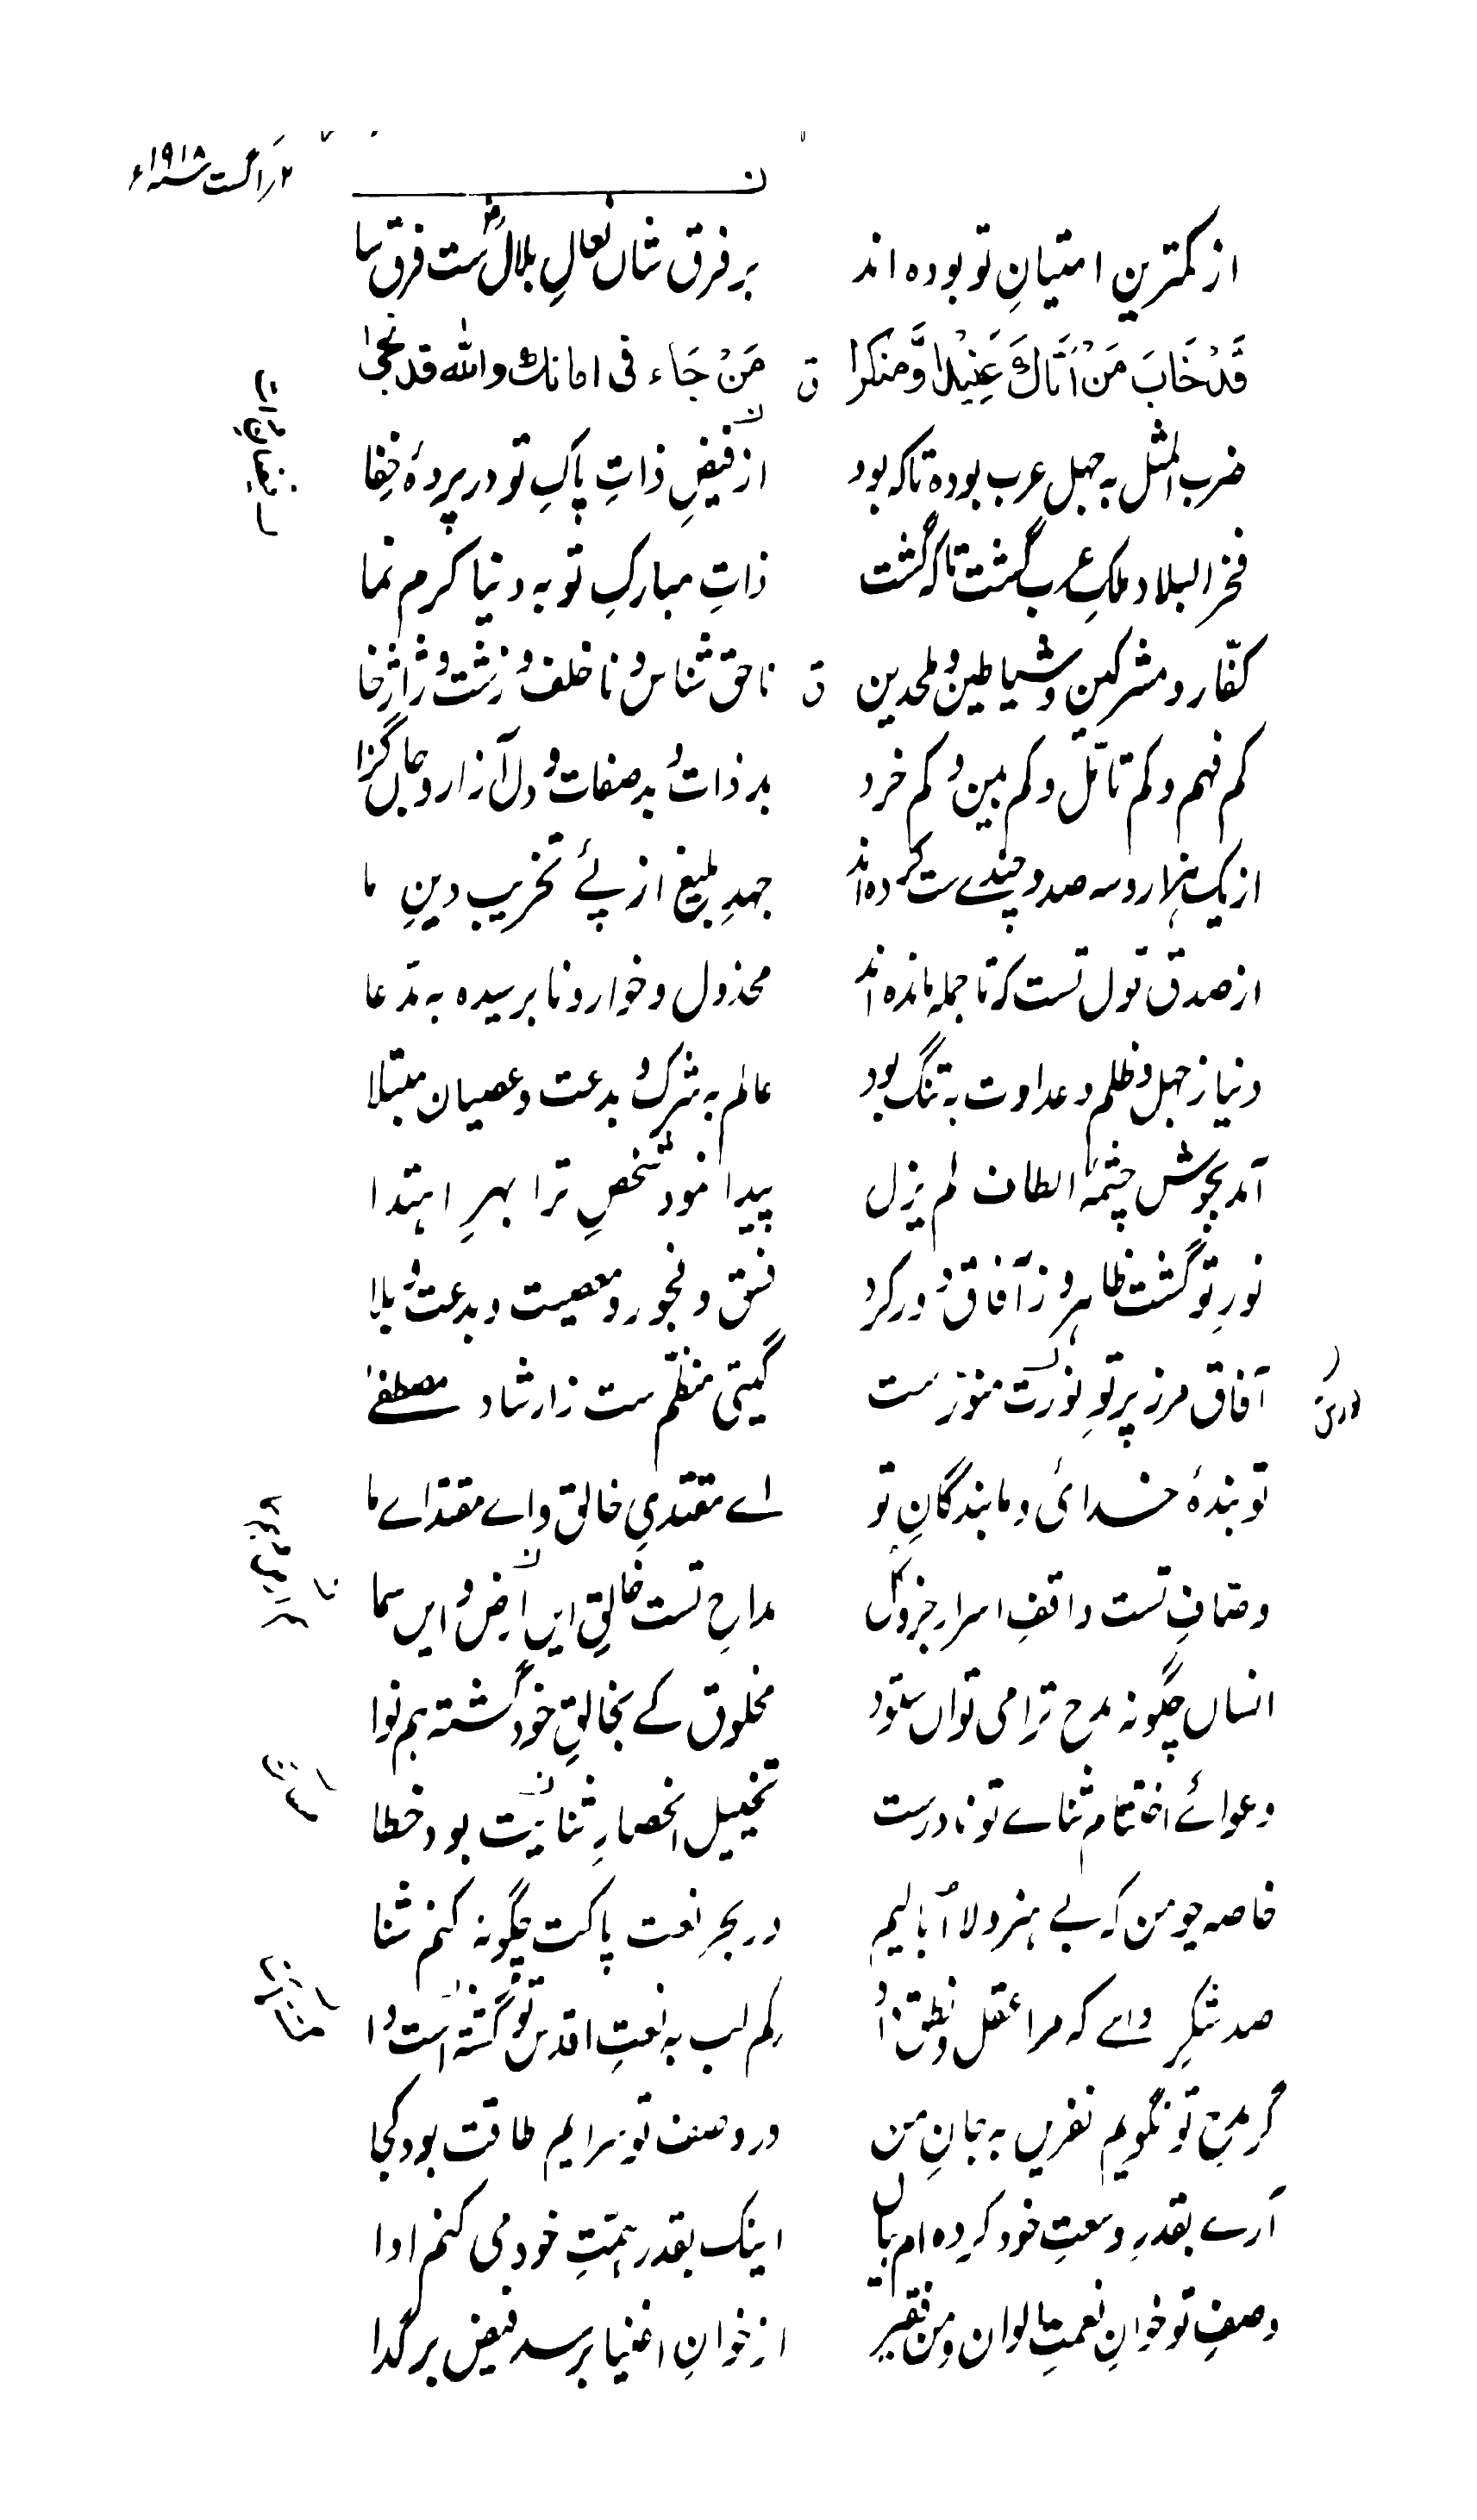 ۲ راگست ۱۹۱۸ء
از کمترین امتیانِ تو بوده اند بر فرق شان نعالِ بلالؓ ست فرق سا
قَدْ خَابَ مَنْ اَتَاكَ عَنِیْدًا وَّ مُنکرا ق مَنْ جَاء فی امانك واللّٰه قد نجیٰ
ضرب المثل بہ جہل عرب بوده تاکہ بود از فیضِ ذاتِ پاکِ تو در پردۂ خِفا
فخر البلاد ملکِ عرب گشت تا کہ گشت ذاتِ مبارکِ تو بہ دنیا کرم نما
کفّار و مشرکین و شیاطین و ملحدین ق ناحق شناس و ناخلف و زشت و ژاژخا
کم فہم و کم تأمّل و کم بین و کم خرد بد ذات و بد صفات و دل آزار و جاں گزا
از یک ہزار و سہ صد و چندے ست کرده اند جہدِ بلیغ از پئے تخریب دینِ ما
از صدق قول تست کہ تا جملہ مانده اند مخذول و خوار و نا برسیده بہ مدّعا
دنیا ز جہل و ظلم و عداوت بہ تنگ بود عالم بہ شرک و بدعت و عصیان مبتلا
آمد بجوش چشمۂ الطاف لم یزل پیدا نمود شخصِ ترا بہرِ اہتدا
نورِ تو گشت ظاہر و ز آفاق دُور کرد فسق و فجور و معصیت و بدعت و بلا
آفاق مرز پرتوِ نورت منوّر ست گیتی منظّم ست ز ارشاد مصطفےٰ
تو بندۂ خدائی و ما بندگانِ تو اے مقتدیِ خالق و اے مقتداے ما
وصّافِ تست واقفِ اسرار جزو کل مداحِ تست خالقِ ایں ارض و ایں سما
انساں چگونہ مدح ترا می تواں ستود مخلوق کے بخالقِ خود گشتہ ہم نوا
دعوائے اختتام ثناے تو نادرست تخییل انحصارِ ثنایت بود خطا
خاصہ چو من کہ بے ہنر و لا اُبالیم در بحرِ نعت پاکت چگونہ کنم ثنا
صد شکرِ داے کہ مرا عقل و نطق داد کم لب بہ نعتِ اقدس تو گشتہ است وا
گر مدحِ تو نگویم نفریں بہ جانِ من در وصف تو سرایم طاقت بود کجا
آرے بقدرِ وسعتِ خود کرده ام بیاں اینک بقدر ہمّتِ خود می کنم ادا
وصفِ تو خوانِ نعمتِ الوان و من فقیر از خوانِ اغنیا برسد فیض بر گدا